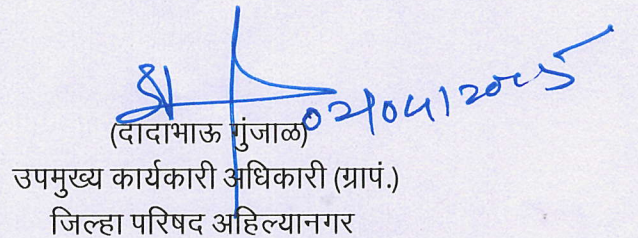 02/04/2025
(दादाभाऊ गुंजाळ)
उपमुख्य कार्यकारी अधिकारी (ग्रापं.)
जिल्हा परिषद अहिल्यानगर